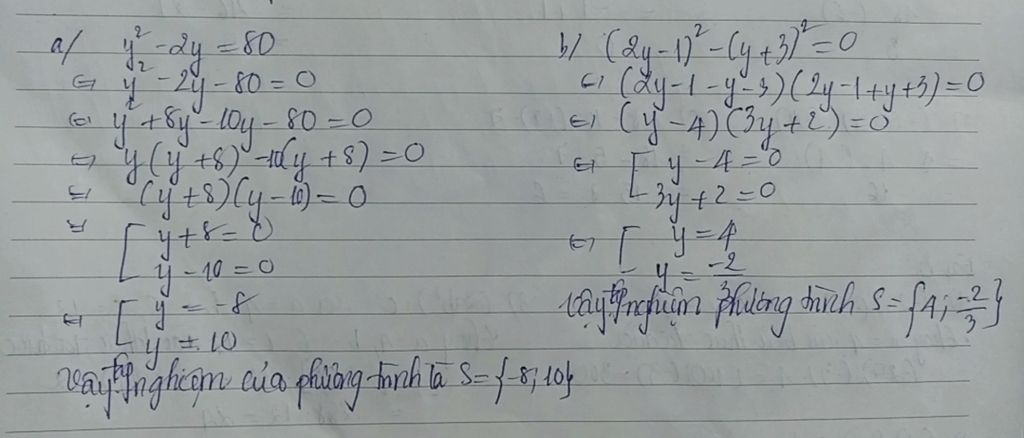 a/ y² - 2y = 80
⇔ y² - 2y - 80 = 0
⇔ y² + 8y - 10y - 80 = 0
⇔ y(y + 8) - 10(y + 8) = 0
⇔ (y + 8)(y - 10) = 0
⇔ [ y + 8 = 0
y - 10 = 0
⇔ [ y = -8
y = 10
Vậy tập nghiệm của phương trình là S = {-8; 10}
b/ (2y - 1)² - (y + 3)² = 0
⇔ (2y - 1 - y - 3)(2y - 1 + y + 3) = 0
⇔ (y - 4)(3y + 2) = 0
⇔ [ y - 4 = 0
3y + 2 = 0
⇔ [ y = 4
y = -2/3
Vậy tập nghiệm phương trình S = {4; -2/3}